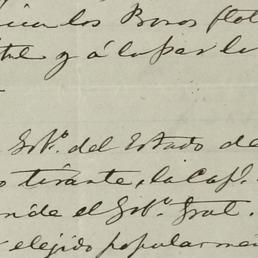 los Bonos flot
y á la par le
Gobº. del Estado de
tirante, la Capl.
el Gobº. Gral.
elejido popularmen